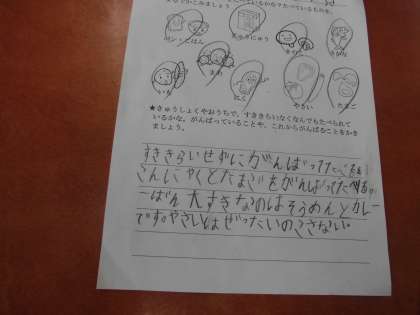 パン・ごはん
ぎゅうにゅう
さかな
まめ
いも
にく
やさい
たまご
★きゅうしょくやおうちで、すききらいなくなんでもたべられて
いるかな。がんばっていることや、これからがんばることをかき
ましょう。
すききらいせずにがんばってたべたよ
こんにゃくとたまごをがんばってたべたよ
一ばん大すきなのはそうめんとカレー
です。やさいはぜったいのこさない。